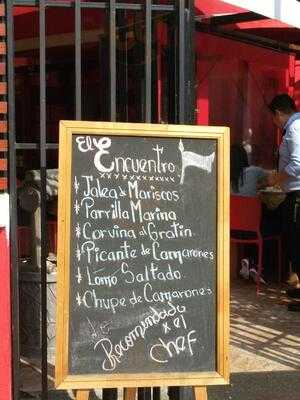 El Encuentro
* Jalea de Mariscos
* Parrilla Marina
* Corvina al Gratin.
* Picante de Camarones
* Lomo Saltado.
* Chupe de Camarones.
Recomendado
x el
chef